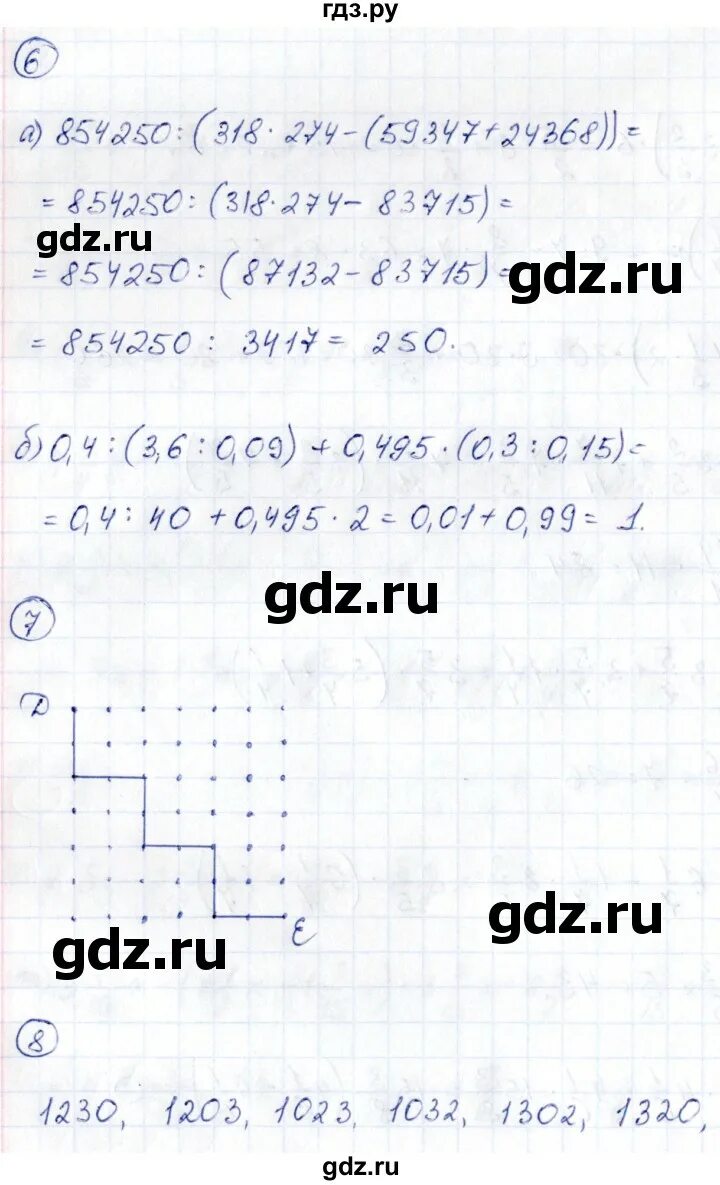 гдз.ру
6
а) 854250:(318·274-(59347+24368))=
=854250:(318·274-83715)=
gdz.ru
=854250:(87132-83715)=
gdz.ru
=854250:3417=250.
б) 0,4:(3,6:0,09)+0,495·(0,3:0,15)=
=0,4:40+0,495·2=0,01+0,99=1.
gdz.ru
7
D
E
gdz.ru
gdz.ru
8
1230, 1203, 1023, 1032, 1302, 1320,
gdz.ru